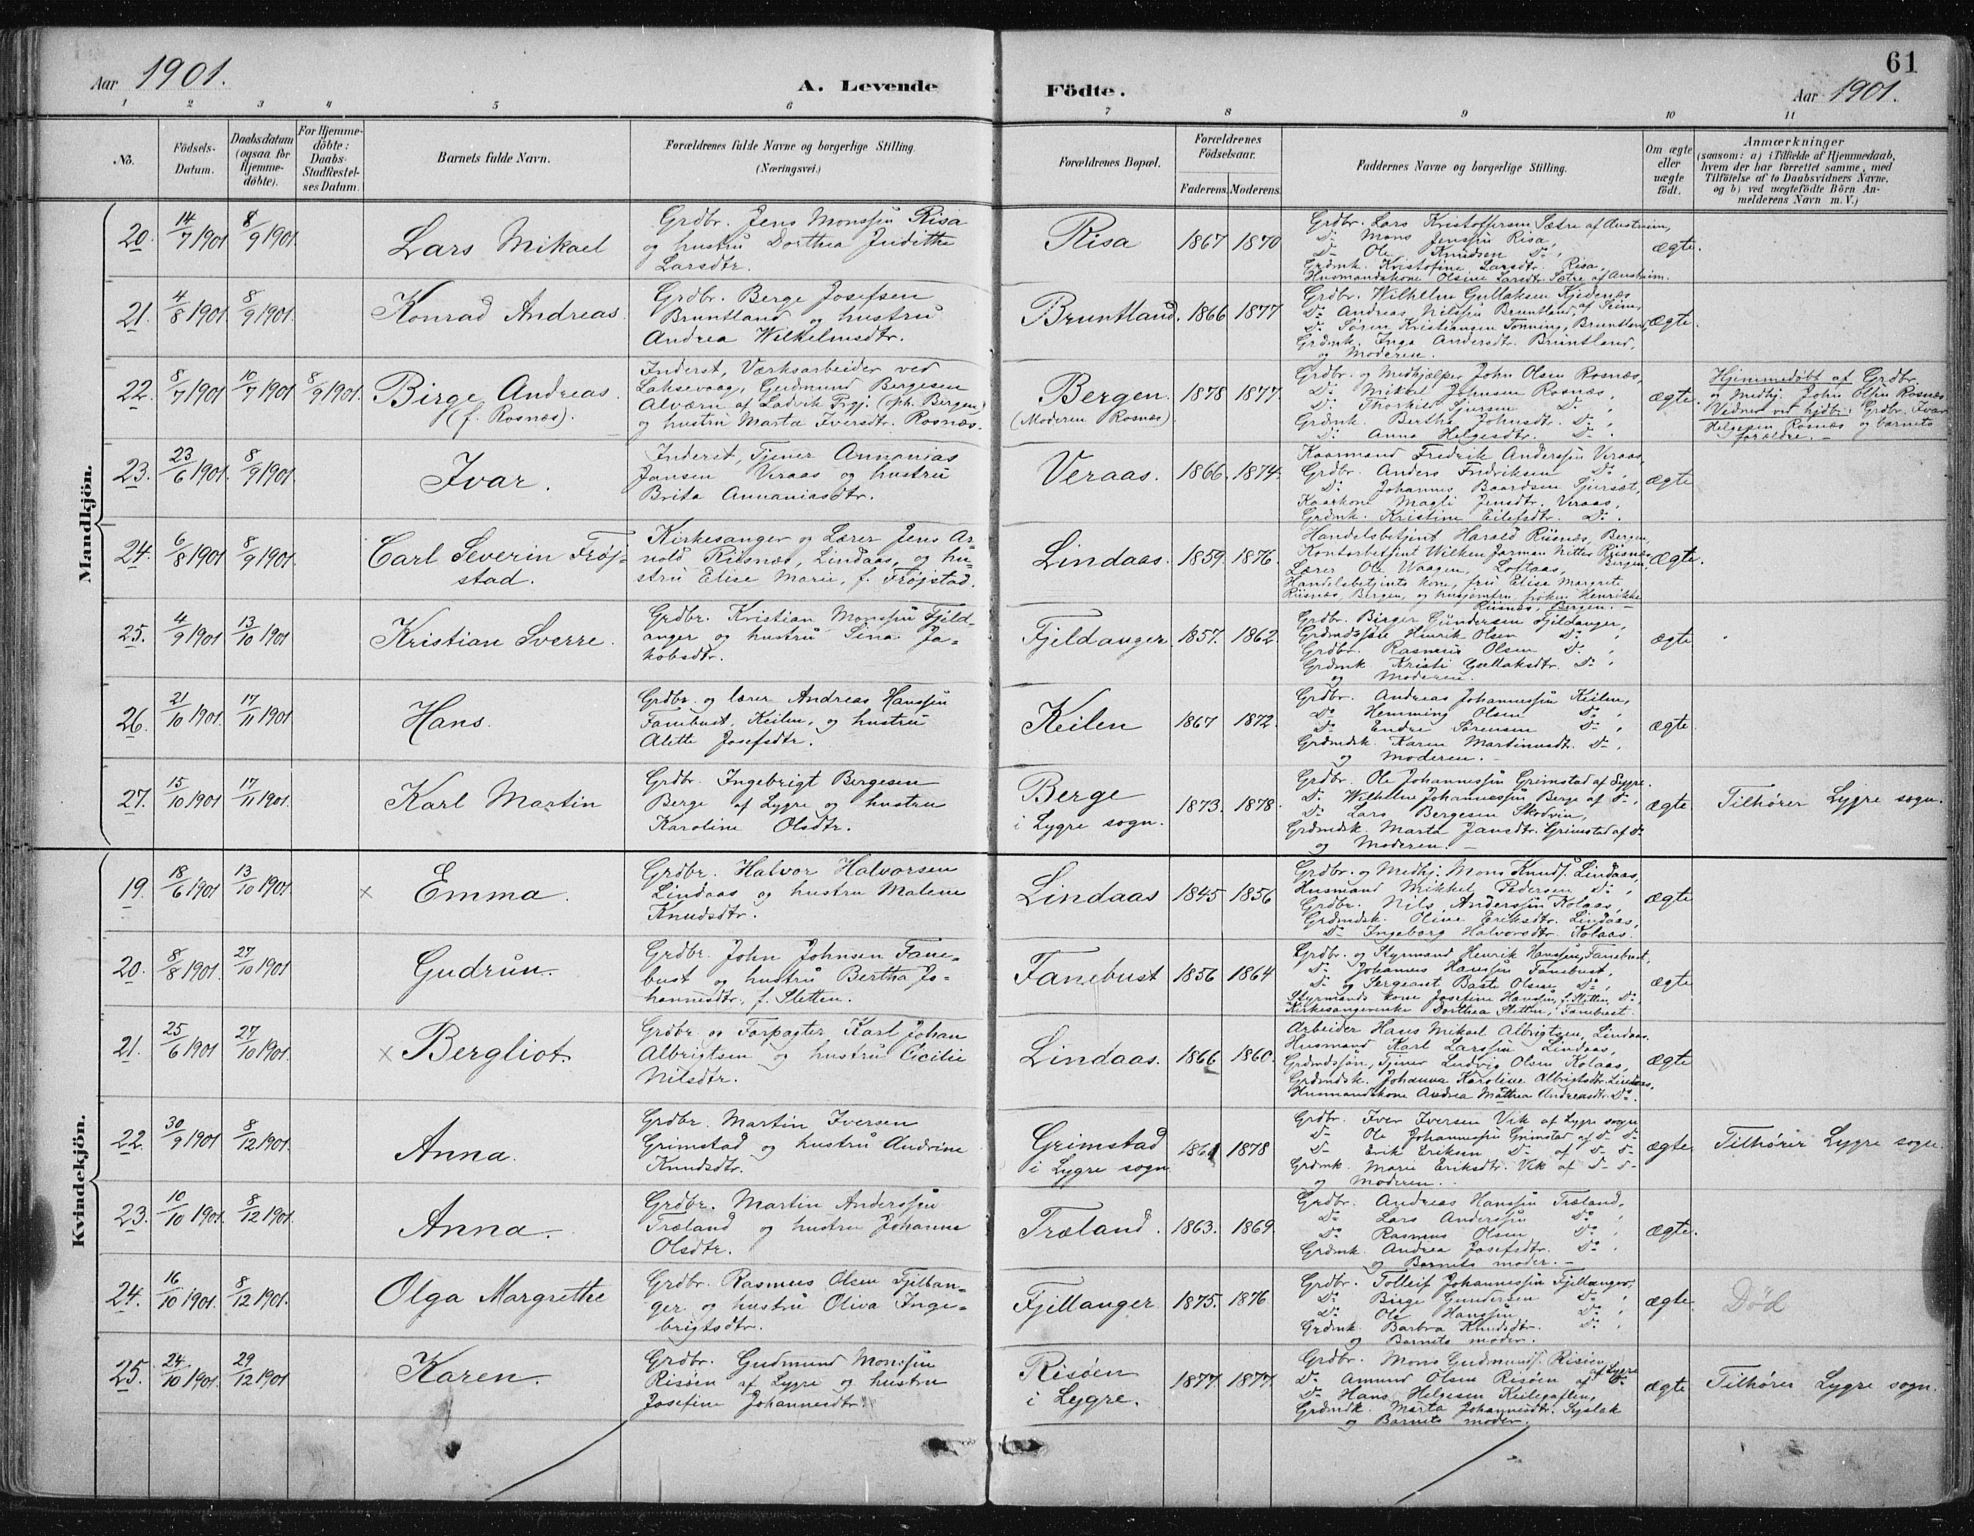 Aar 1901.
A. Levende
Födte.
61
Aar 1901.
1 2 3 4 5 6 7 8 9 10 11
No.
Födsels-Datum.
Daabsdatum (ogsaa for Hjemme-döbte).
For Hjemme-döbte: Daabs-Stadfæstel-ses Datum.
Barnets fulde Navn.
Forældrenes fulde Navne og borgerlige Stilling. (Næringsvei.)
Forældrenes Bopæl.
Forældrenes Födselsaar.
Faderens. Moderens.
Faddernes Navne og borgerlige Stilling.
Om ægte eller uægte födt.
Anmærkninger
(saasom: a) i Tilfælde af Hjemmedaab,
hvem der har forrettet samme, med
Tilföielse af to Daabsvidners Navne,
og b) ved uægtefödte Börn An-
melderens Navn m. V.)
Mandkjön.
20. 14/7 1901 8/9 1901. Lars Mikael
Grdbr. Jens Monssøn Risa
og hustru Dorthea Judithe
Larsdtr.
Risa 1867 1870
Grdbr. Lars Kristoffersen Sætre af Austreim,
Do Mons Jenssøn Risa,
Do Ole Knudsen Do,
Grdmk. Kristofine Larsdtr. Risa,
Husmandskone Olsine Larsdtr. Sætre af Austreim.
ægte.
21. 4/8 1901 8/9 1901. Konrad Andreas.
Grdbr. Berge Josefsen
Bruntland og hustru
Andrea Wilhelmsdtr.
Bruntland. 1866 1877
Grdbr. Wilhelm Gullaksen Kjednæs af Seim,
Do Andreas Nilssøn Bruntland,
Do Søren Kristiansen Tonning, Bruntland,
Grdmk. Inga Andersdtr. Bruntland,
og Moderen.
ægte.
22. 8/7 1901 10/7 1901 8/9 1901. Birge Andreas.
(f. Rosnæs).
Inderst, Værksarbeider ved
Laksevaag, Gudmund Bergesen
Alværn af Ladvik Prgj. (ph. Bergen)
og hustru Marta Iversdtr. Rosnæs.
Bergen.
(Moderen Rosnæs)
1878 1877
Grdbr. og Medhjælper John Olsen Rosnæs,
Do Mikkel Johnsen Rosnæs,
Do Thorkel Sjursen Do,
Grdmk. Berthe Johnsdtr. Do,
Do Anna Helgesdtr. Do.
ægte.
Hjemmedøbt af Grdbr.
og Medhj. John Olsen Rosnæs
Vidner ved hjdb: Grdbr. Ivar
Helgesen Rosnæs og barnets
forældre.
23. 23/6 1901 8/9 1901. Ivar.
Inderst, Tjener Annanias
Jansen Veraas og hustru
Brita Annaniasdtr.
Veraas. 1866. 1874.
Kaarmand Fredrik Anderssøn Veraas,
Grdbr. Anders Fredriksen Do,
Do Johannes Baardsen Sjurset,
Kaarkone Magli Jensdtr. Veraas,
Grdmk. Kristine Eilefsdtr. Do.
ægte
24. 6/8 1901 8/9 1901. Carl Severin Frøj-
stad.
Kirkesanger og Lærer Jens Ar-
nold Riisnæs, Lindaas, og hu-
stru Elise Marie, f. Frøjstad.
Lindaas. 1859. 1876.
Handelsbetjent Harald Riisnæs, Bergen,
Kontorbetjent Wilken Jarman Nitter Riisnæs, Bergen,
Lærer Ole Waagen, Loftaas,
Handelsbetjents kone, fru Elise Margrete
Riisnæs, Bergen, og husjomfru, frøken Henrikke
Riisnæs, Bergen.
ægte.
25. 4/9 1901 13/10 1901 Kristian Sverre.
Grdbr. Kristian Monssøn Fjeld-
anger og hustru Sina Ja-
kobsdtr.
Fjeldanger 1857. 1862.
Grdbr. Birger Gundersen Fjeldanger,
Grdmdsføn Henrik Olsen Do,
Grdbr. Rasmus Olsen Do,
Grdmk Kristi Gullaksdtr. Do,
og Moderen.
ægte
26. 21/10 1901. 17/11 1901. Hans.
Grdbr. og lærer Andreas Hanssøn
Fanebust, Keilen, og hustru
Alette Josefsdtr.
Keilen 1867 1872.
Grdbr. Andreas Johannessøn Keilen,
Do Hemming Olsen Do,
Do Endre Sørensen Do,
Grdmdsk. Karen Martinusdt. Do,
og Moderen.
ægte.
27. 15/10 1901 17/11 1901. Karl Martin
Grdbr. Ingebrigt Bergesen
Berge af Lygre og hustru
Karoline Olsdtr.
Berge
i Lygre sogn.
1873. 1878.
Grdbr. Ole Johannessøn Grimstad af Lygre.
Do Wilhelm Johannessøn Berge af Do,
Do Lars Bergesen Skodvin,
Grdmdsk. Marta Jansdtr. Grimstad af Do
og Moderen.
ægte
Tilhører Lygre sogn.
Kvindekjön.
19. 18/6 1901 13/10 1901. × Emma.
Grdbr. Halvor Halvorsen
Lindaas og hustru Malene
Knudsdtr.
Lindaas 1845 1856
Grdbr. og Medhj. Mons Knuds. Lindaas,
Husmand Mikkel Pedersen Do,
Grdbr. Nils Anderssøn Kolaas,
Grdmdsk. Oline Eriksdtr. Lindaas,
Do Ingeborg Halvorsdtr. Kolaas.
ægte
20. 8/8 1901 27/10 1901 Gudrun.
Grdbr. John Johnsen Fane-
bust og hustru Bertha Jo-
hannesdtr. f. Sletten.
Fanebust 1856 1864
Grdbr. og Styrmand Henrik Hanssøn, Fanebust,
Do Johannes Hanssøn Fanebust,
Do og Sergeant Baste Olsen Do,
Styrmands kone Josefine Hanssøn, f. Sletten, Do,
Kirkesangerenke Dorthea Sletten, Fanebust.
ægte
21. 25/6 1901 27/10 1901. × Bergliot.
Grdbr og Forpagter Karl Johan
Albrigtsen og hustru Cicilie
Nilsdtr.
Lindaas. 1866 1860.
Arbeider Hans Mikael Albrigtsen, Lindaas.
Husmand Karl Larssøn Lindaas,
Grdmdssøn, Tjener Ludvig Olsen Kolaas,
Grdmdsk. Johanna Karoline Albrigtsdtr. Lindaas,
Husmandskone Andrea Mathea Andreasdtr. Do.
ægte
22. 30/9 1901 8/12 1901. Anna.
Grdbr. Martin Iversen
Grimstad og hustru Andrine
Knudsdtr.
Grimstad
i Lygre sogn
1861 1878
Grdbr. Iver Iversen Vik af Lygre sogn
Do Ole Johannessøn Grimstad af Do Do
Do Erik Eriksen Do af Do Do
Grdmk. Marie Eriksdtr. Vik af Do Do
og Moderen.
ægte.
Tilhører Lygre sogn.
23. 10/10 1901. 8/12 1901. Anna.
Grdbr. Martin Anderssøn
Træland og hustru Johanne
Olsdtr.
Træland. 1863. 1869.
Grdbr. Andreas Hanssøn Træland,
Do Lars Anderssøn Do,
Do Rasmus Olsen Do,
Grdmk. Andrea Josefsdtr. Do,
og Barnets moder.
ægte.
24. 16/10 1901. 8/12 1901. Olga Margrethe
Grdbr. Rasmus Olsen Fjellan-
ger og hustru Oliva Inge-
brigtsdtr.
Fjellanger 1875. 1876
Grdbr. Tolleif Johannessøn Fjellanger,
Do Birge Gundersen Do,
Do Ole Hanssøn Do,
Grdmk. Barbra Knudsdtr. Do,
og Barnets moder.
ægte.
Død
25. 24/10 1901 29/12 1901 Karen.
Grdbr. Gudmund Monssøn
Risøen af Lygre og hustru
Josefine Johannesdtr.
Risøen
i Lygre.
1877. 1877.
Grdbr. Mons Gudmunds. Risøen af Lygre
Do Amund Olsen Risøen af Do
Do Hans Helgesen Keilegaflen,
Grdmdk. Marta Johannesdtr. Syslak
og Barnets moder.
ægte
Tilhører Lygre sogn.